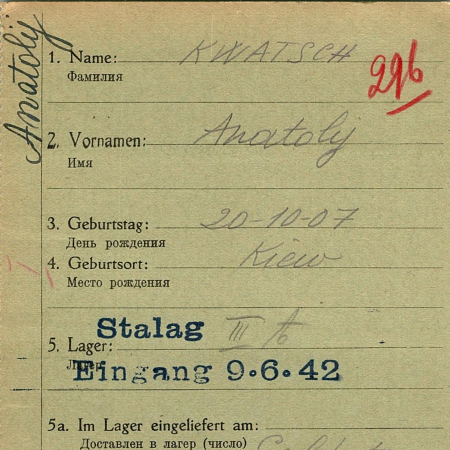 Anatolij
1. Name: KWATSCH
Фамилия
296
2. Vornamen: Anatolij
Имя
3. Geburtstag: 20-10-07
День рождения
4. Geburtsort: Kiew
Место рождения
Stalag
5. Lager: III
Eingang 9.6.42
5a. Im Lager eingeliefert am:
Доставлен в лагерь (число)